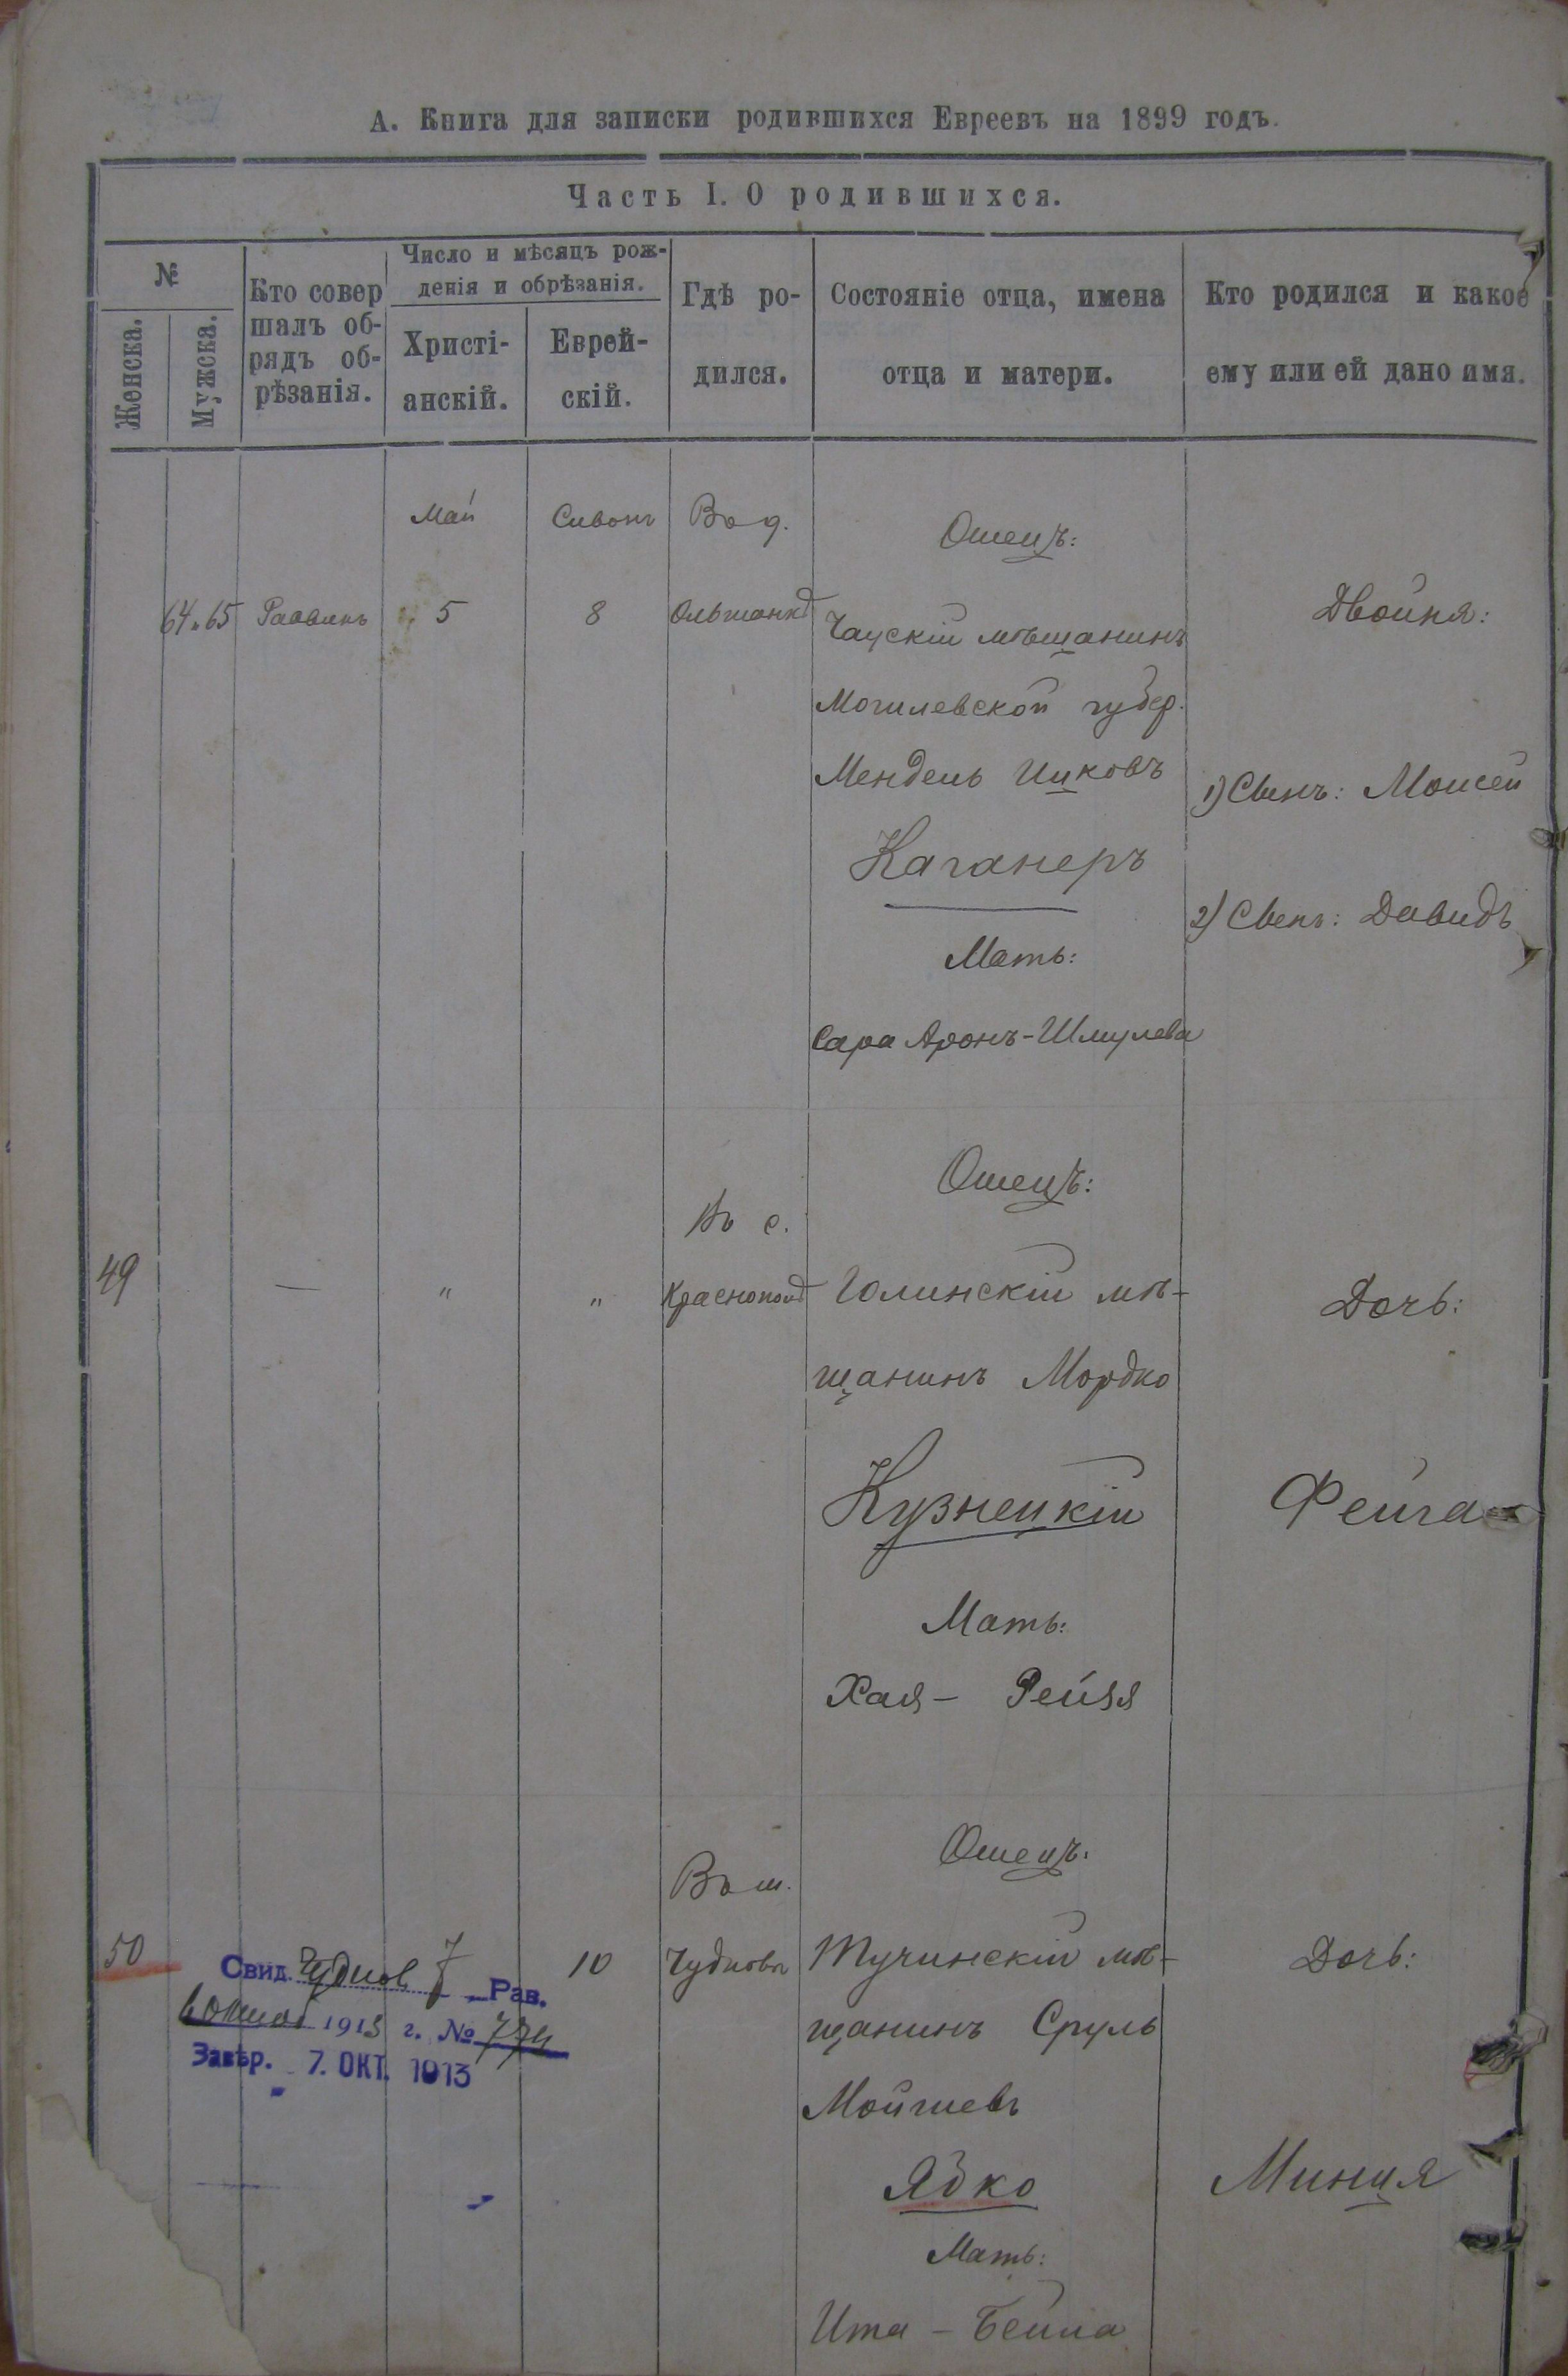 А. Книга для записки родившихся Евреевъ на 1899 годъ.
Часть I. О родившихся.
№
Женска.
Мужска.
Кто совер
шалъ об-
рядъ об-
рѣзанія.
Число и мѣсяцъ рож-
денія и обрѣзанія.
Христі-
анскій.
Еврей-
скій.
Гдѣ ро-
дился.
Состояніе отца, имена
отца и матери.
Кто родился и какое
ему или ей дано имя.
64 и 65
Раввинъ
Май
5
Сивонъ
8
Въ д.
Ольшанкѣ
Отецъ:
Чаускій мѣщанинъ
Могилевской губер.
Мендель Ицковъ
Каганеръ
Мать:
Сара Аронъ-Шмулева
Двойня:
1) Сынъ: Моисей
2) Сынъ: Давидъ
49
—
"
"
Въ с.
Краснополѣ
Отецъ:
Голинскій мѣ-
щанинъ Мордко
Кузнецкій
Мать:
Хая - Рейзя
Дочь:
Фейга
50
7
10
Въ м.
Чудновѣ
Отецъ:
Тучинскій мѣ-
щанинъ Сруль
Мойшевъ
Ядко
Мать:
Ита - Бейла
Дочь:
Минця
Свид. Чуднов Рав.
6 Октяб 1913 г. № 774
Завѣр. 7. ОКТ. 1913